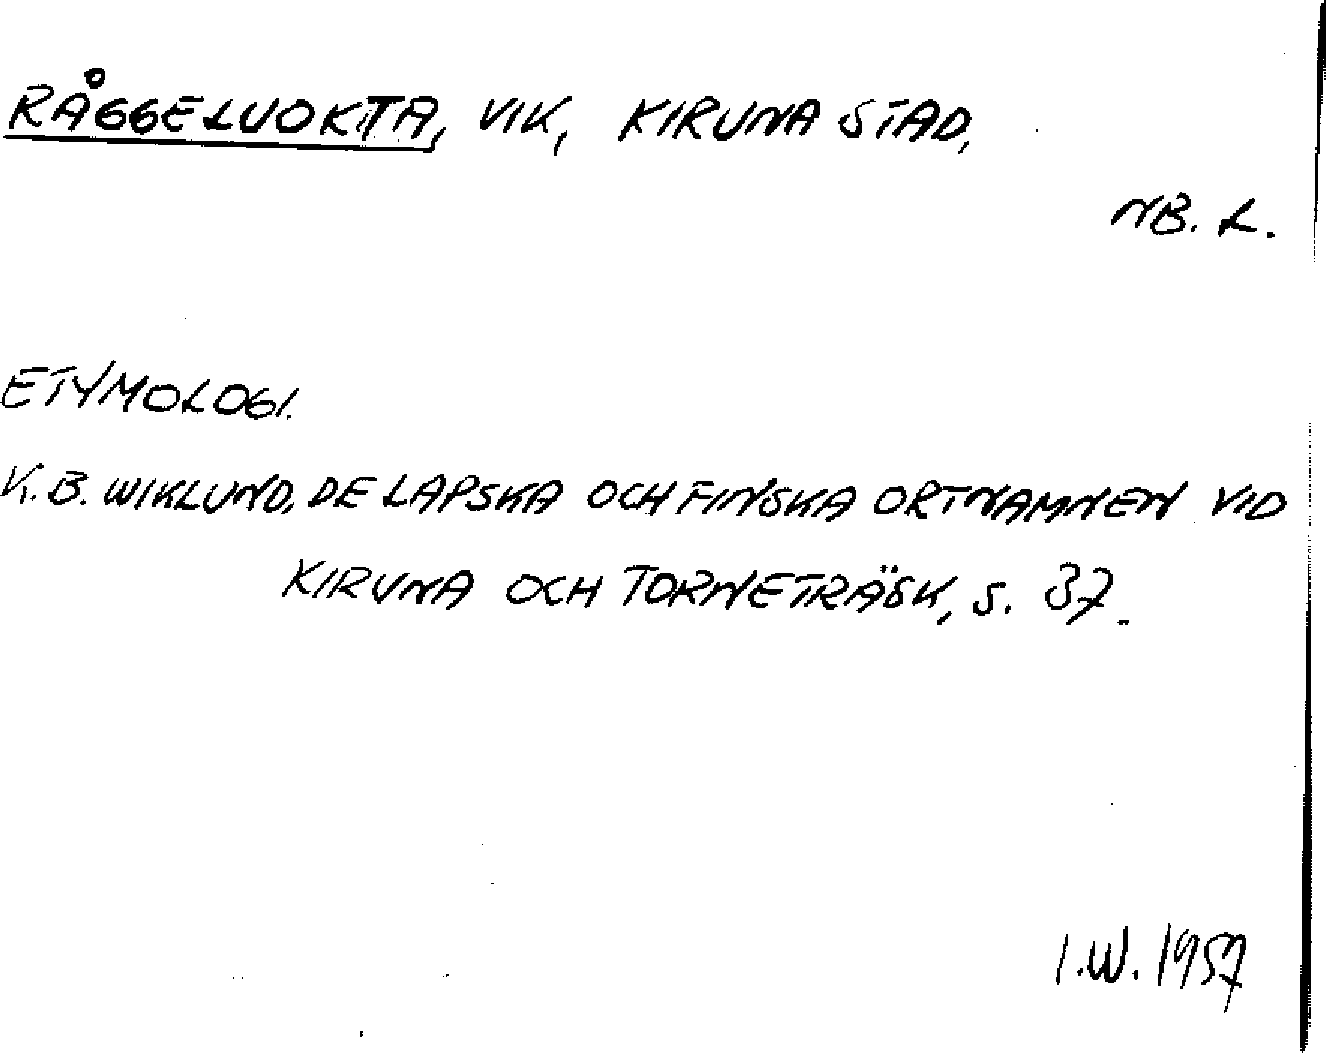 RÅGGELUOKTA, VIK, KIRUNA STAD,
NB. L.
ETYMOLOGI.
K.B. WIKLUND, DE LAPSKA OCH FINSKA ORTNAMNEN VID
KIRUNA OCH TORNETRÄSK, S. 37.
I.W. 1957